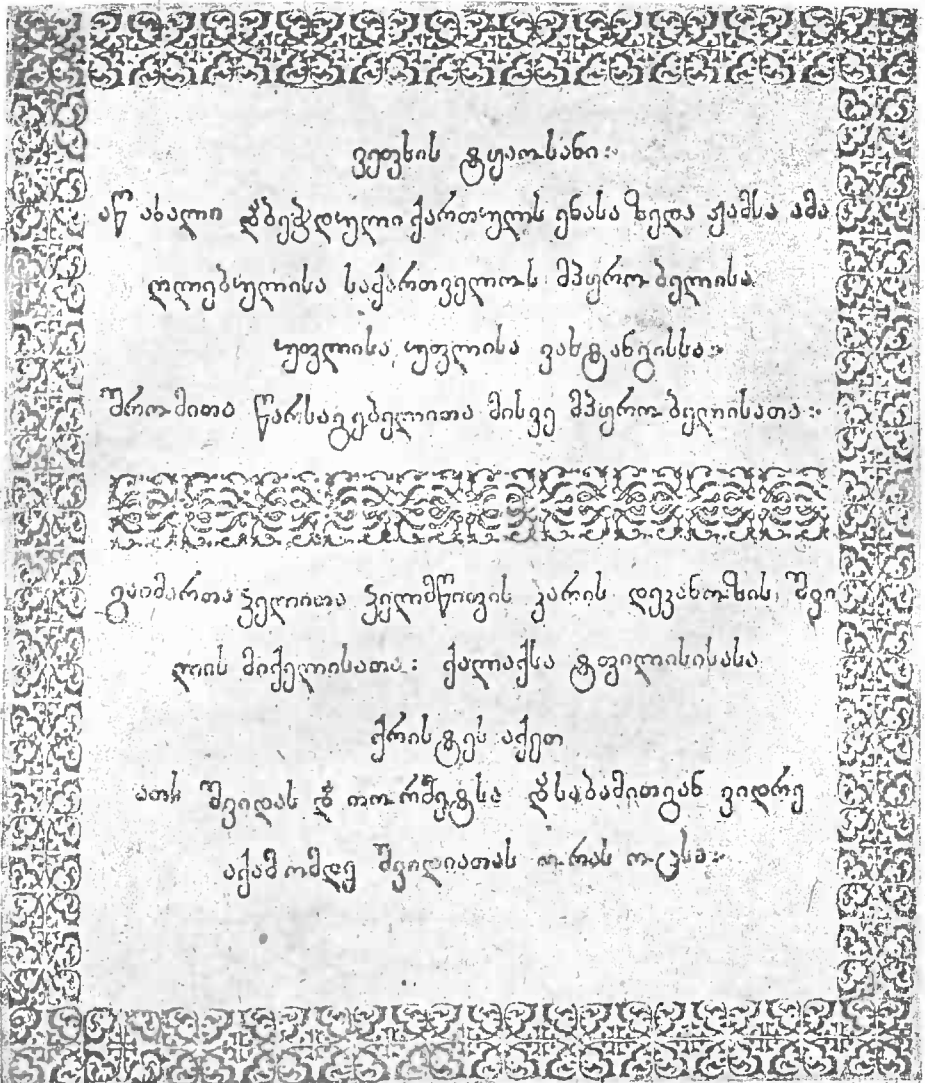 ვეფხის ტყაოსანი:
აწ ახალი დბეჭდული ქართულს ენასა ზედა ჟამსა ამა
ღლებულისა საქართველოს მპყრობელისა
უფლისა უფლისა ვახტანგისსა:
შრომითა წარსაგებელითა მისვე მპყრობელისათა:
გაიმართა ჴელითა ჴელმწიფის კარის დეკანოზის, შვი
ლის მიქელისათა: ქალაქსა ტფილისისასა
ქრისტეს აქეთ
ათს შვიდას დ თორმეტსა დსაბამითგან ვიდრე
აქამომდე შვიდიათას ორას ოცსა: